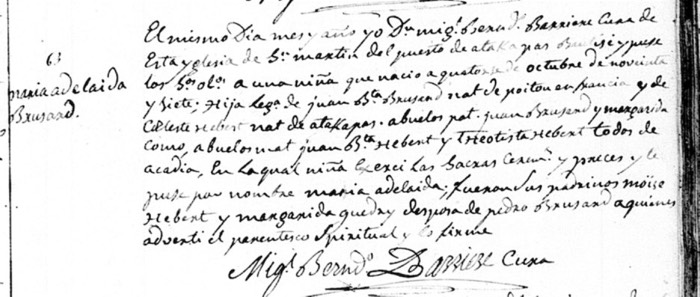 63
maria adelaida
Brusard.
El mismo Dia mes y año yo Dn. migl. Bernd. Barriere Cura de
Esta yglesia de Sn. martin del puesto de atakapas Bautisé y puse
los Stos. olos. a una niña que nacio a quatorse de octubre de noventa
y siete; Hija lega. de juan Bta. Brusard nat de poitou en francia y de
Céleste Hebert nat de atakapas. abuelos pat. juan Brusard y margarida
como, abuelos mat juan Bta. Hebert y Theotista Hebert todos de
acadia, En la qual niña Exerci las Sacras Cerem. y preces y le
puse por nombre maria adelaida; fueron sus padrinos moïse
Hebert y margarida guedry desposa de pedro Brusard a quienes
adverti el parentesco Spiritual y lo firme
Migl. Berndo. Barriere Cura